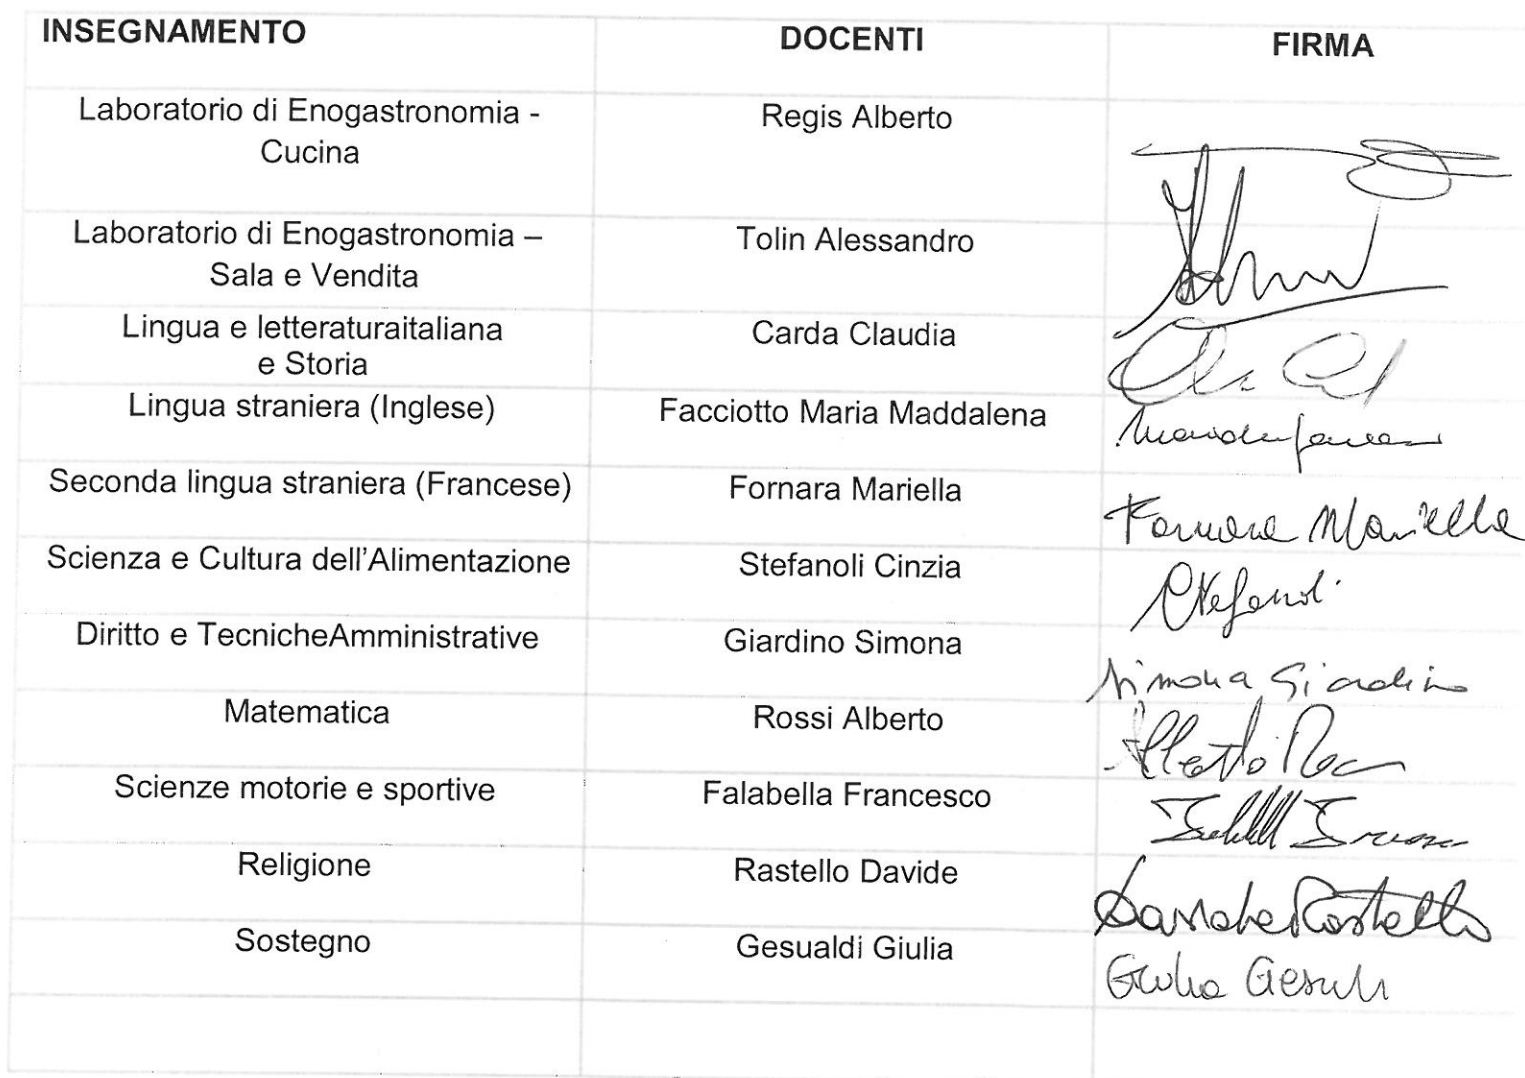 INSEGNAMENTO DOCENTI FIRMA
Laboratorio di Enogastronomia - Regis Alberto
Cucina
Laboratorio di Enogastronomia – Tolin Alessandro
Sala e Vendita
Lingua e letteraturaitaliana Carda Claudia
e Storia
Lingua straniera (Inglese) Facciotto Maria Maddalena
Seconda lingua straniera (Francese) Fornara Mariella
Fornara Mariella
Scienza e Cultura dell'Alimentazione Stefanoli Cinzia
Diritto e TecnicheAmministrative Giardino Simona
Simona Giardino
Matematica Rossi Alberto
Scienze motorie e sportive Falabella Francesco
Religione Rastello Davide
Davide Rastello
Sostegno Gesualdi Giulia
Giulia